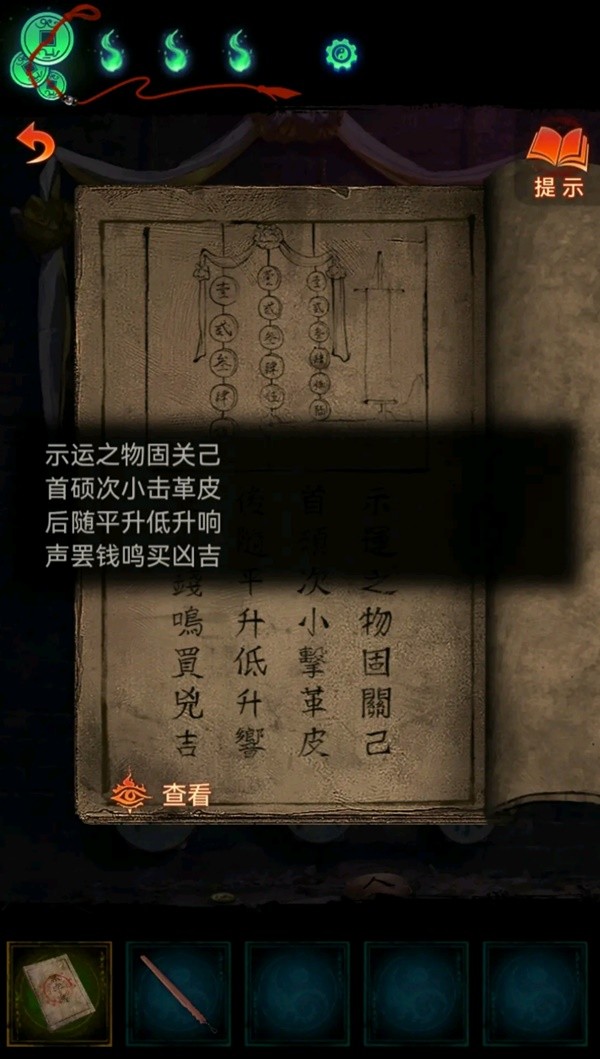 提示
壹 壹 壹
贰 贰 贰
叁 叁 叁
肆 肆 肆
伍
示运之物固关己
首硕次小击革皮
后随平升低升响
声罢钱鸣买凶吉
示運之物固關己
首碩次小擊革皮
後隨平升低升響
錢鳴買兇吉
查看